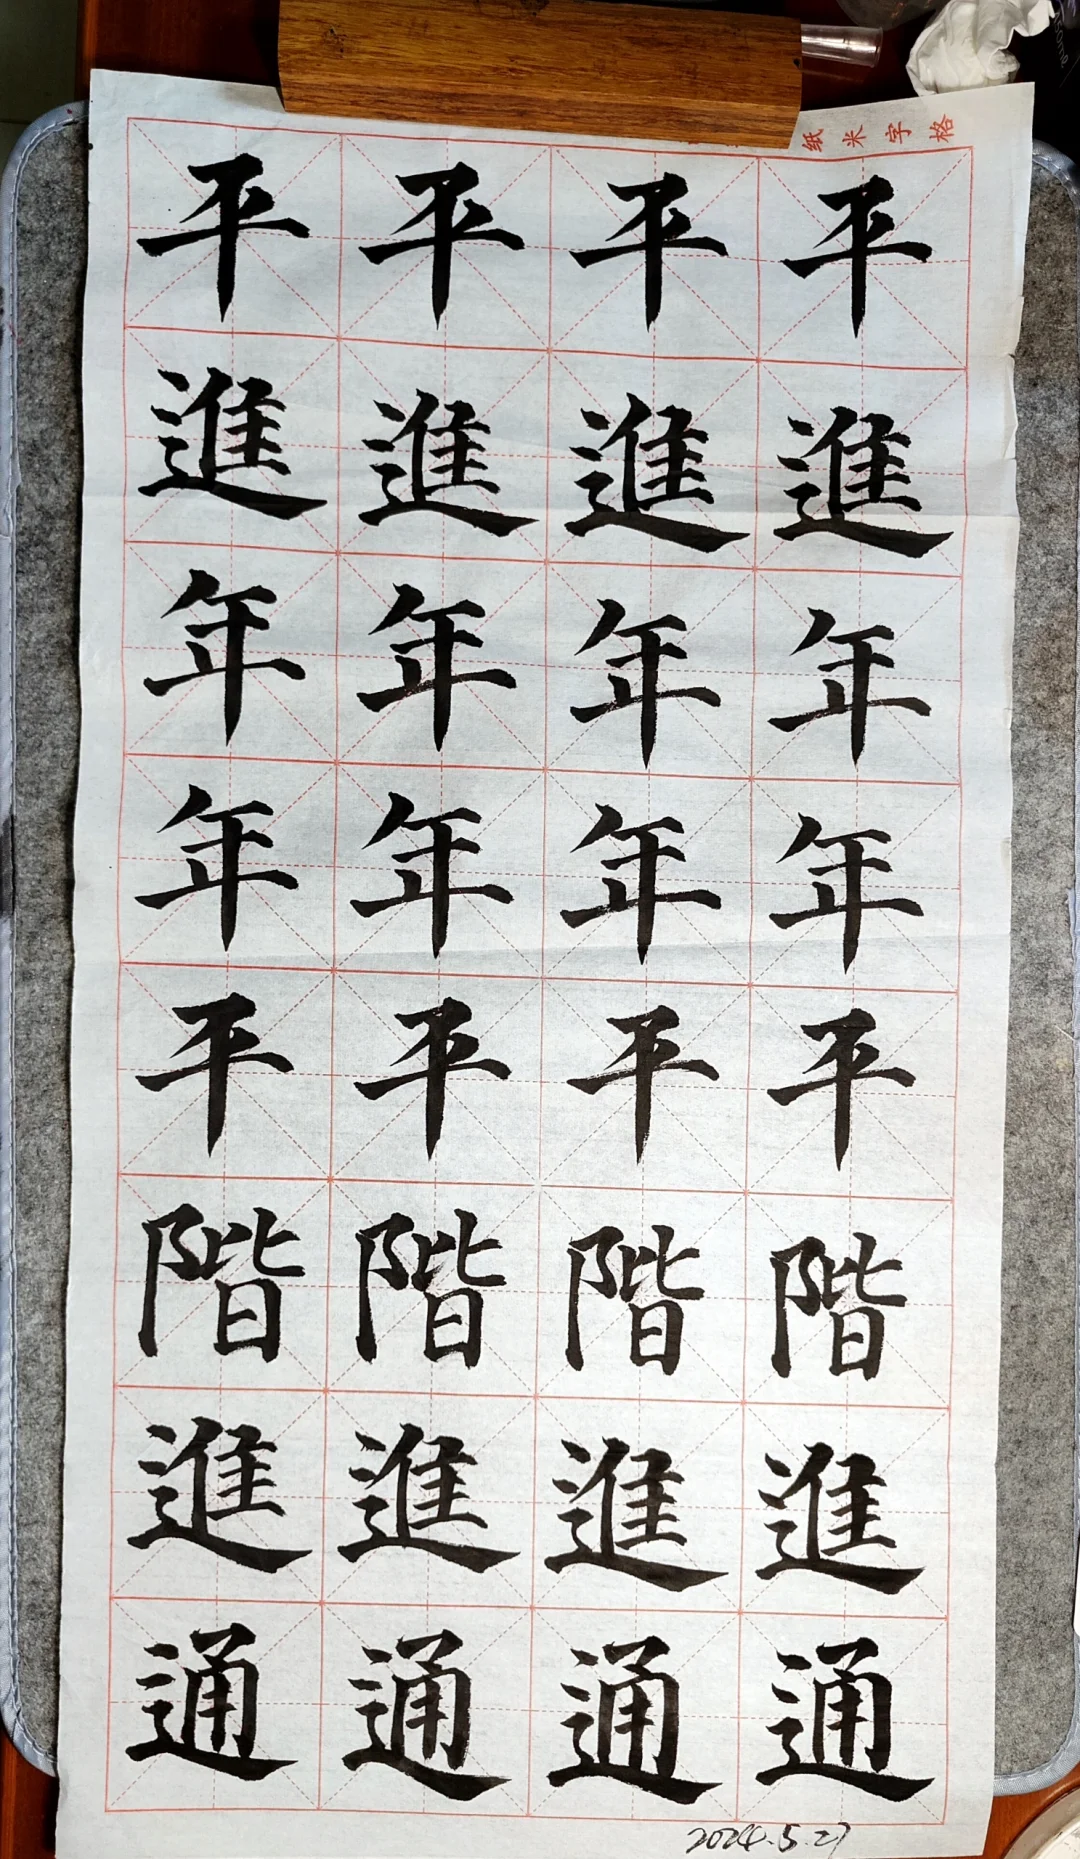 纸米字格
平平平平
進進進進
年年年年
年年年年
平平平平
階階階階
進進進進
通通通通
2024.5.27